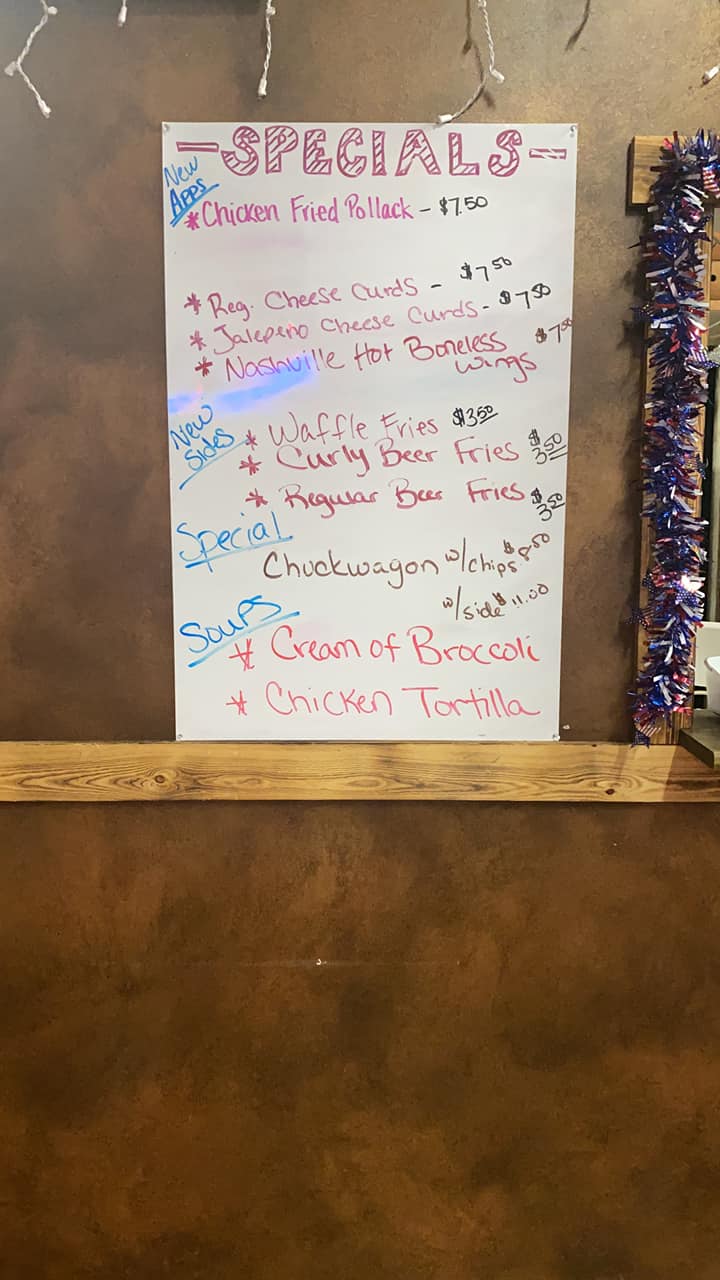 -SPECIALS-
New Apps
*Chicken Fried Pollack - $7.50
* Reg. Cheese Curds - $7.50
* Jalepeno Cheese Curds - $7.50
* Nashville Hot Boneless
wings
New Sides
* Waffle Fries $3.50
* Curly Beer Fries $3.50
* Regular Beer Fries $3.50
Special
Chuckwagon w/chips $8.50
w/side $11.00
Soups
* Cream of Broccoli
* Chicken Tortilla